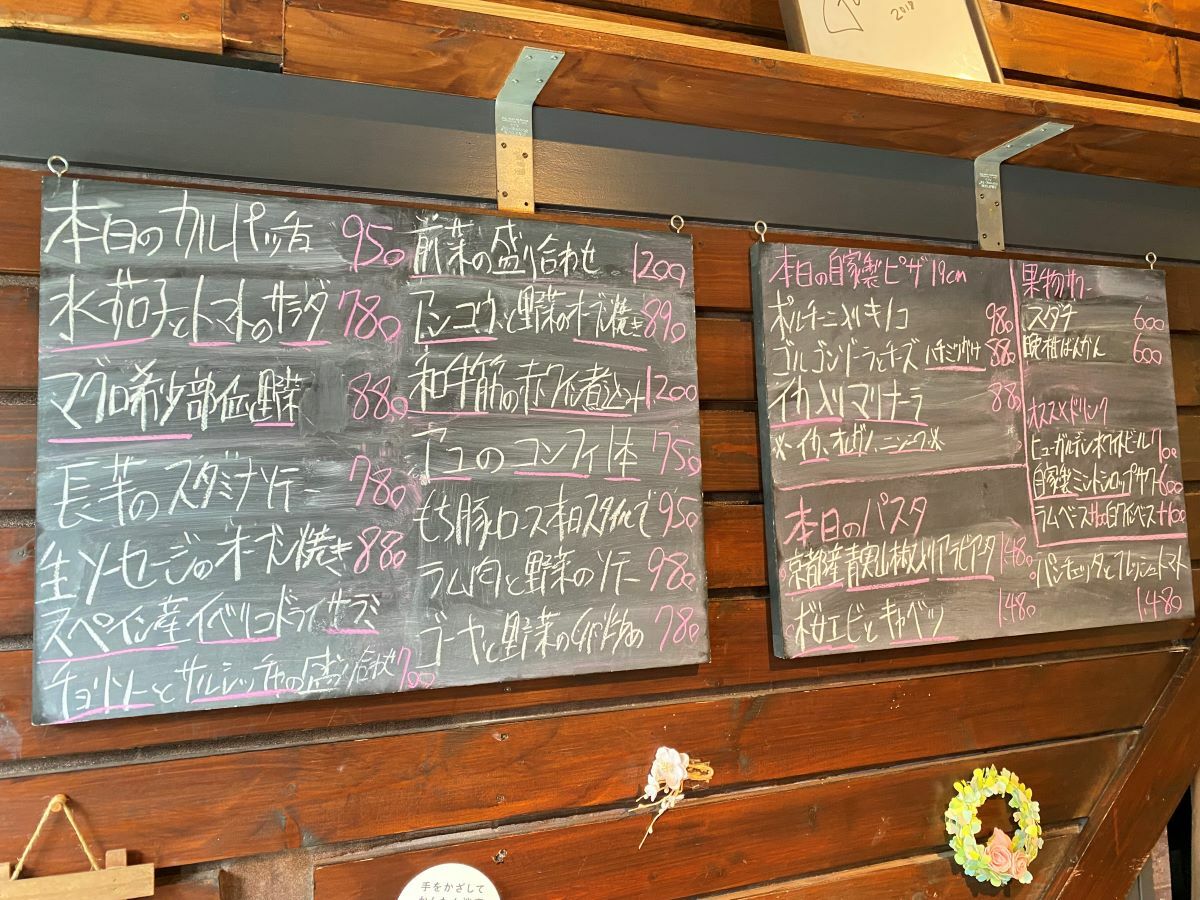 本日のカルパッチョ 950
水茄子とトマトのサラダ 780
マグロ希少部位と野菜 880
長芋のスタミナソテー 780
生ソーセージのオーブン焼き 880
スペイン産イベリコドライサラミ
チョリソーとサルシッチャの盛り合わせ 700
前菜の盛り合わせ 1200
アンコウと野菜のオーブン焼き 890
和牛筋の赤ワイン煮込み 1200
アユのコンフィ 1本 750
もち豚ロース本日スタイルで 950
ラム肉と野菜のソテー 980
ゴーヤと野菜の 780
本日の自家製ピザ 19cm
ポルチーニ入りキノコ 980
ゴルゴンゾーラとチーズ ハチミツがけ 880
イカ入りマリナーラ 880
※イカ、オレガノ、ニンニク※
本日のパスタ
京都産青実山椒入りアラビアタ 1.480
桜エビとキャベツ 1.480
パンチェッタとフレッシュトマト 1.480
果物サワー
スダチ 600
晩柑ばんかん 600
オススメドリンク
ヒューガルデンホワイトビール 700
自家製ミントシロップサワー 600
ラムベース 白ワインベース+100
2018
手をかざして